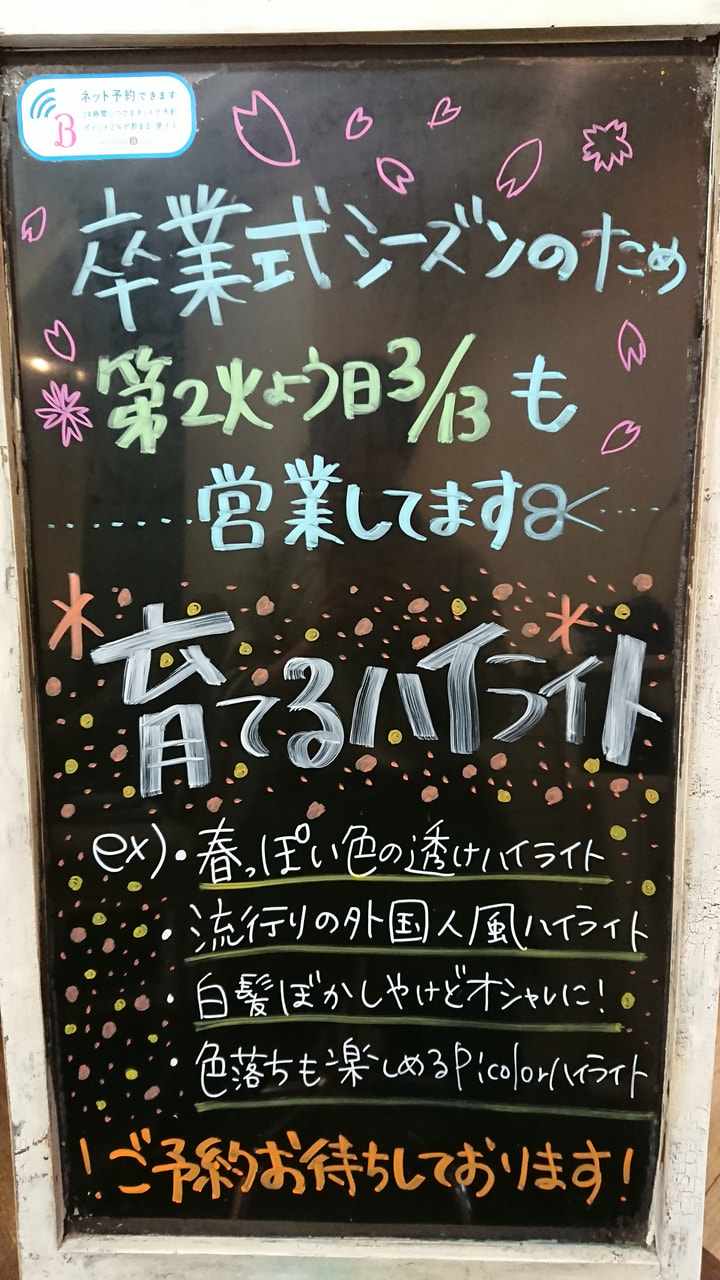 ネット予約できます
24時間いつでもネットで予約
ポイント2%が貯まる・使える
B
卒業式シーズンのため
第2火よう日3/13も
営業してます
育てるハイライト
ex)・春っぽい色の透けハイライト
・流行りの外国人風ハイライト
・白髪ぼかしやけどオシャレに!
・色落ちも楽しめるPicolorハイライト
!ご予約お待ちしております!